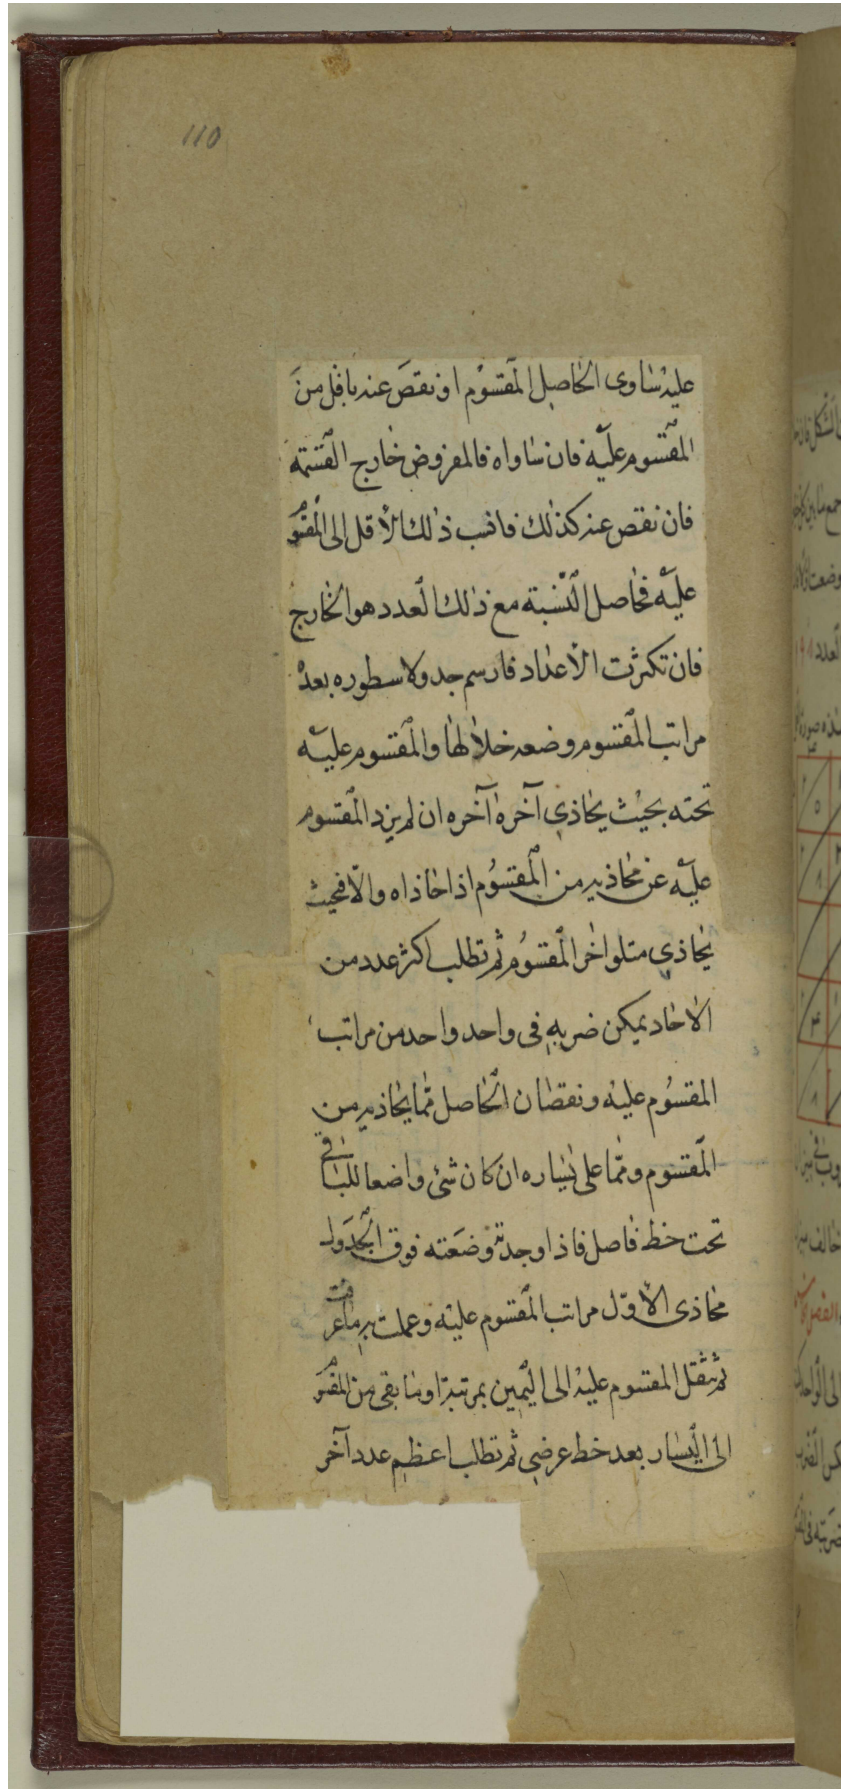 110
عليه ساوى الحاصل المقسوم او نقص عنه باقل من
المقسوم عليه فان ساواه فالمفروض خارج القسمة
فان نقص عنه كذلك فانسب ذلك الاقل الى المقسو
عليه فحاصل النسبة مع ذلك العدد هو الخارج
فان تكثرت الاعداد فارسم جدولا سطوره بعدة
مراتب المقسوم وضعه خلالها والمقسوم عليه
تحته بحيث يحاذى آخره آخره ان لم يزد المقسوم
عليه عن محاذيه من المقسوم اذا حاذاه والا فبحيث
يحاذى متلو اخر المقسوم ثم تطلب اكثر عدد من
الاحاد يمكن ضربه فى واحد واحد من مراتب
المقسوم عليه ونقصان الحاصل مما يحاذيه من
المقسوم ومما على يساره ان كان شئ واضعا للباقى
تحت خط فاصل فاذا وجدته وضعته فوق الجدول
محاذى الاول مراتب المقسوم عليه وعملت به ما عرفت
ثم تنقل المقسوم عليه الى اليمين بمرتبة او ما بقى من المقسو
الى اليسار بعد خط عرضى ثم تطلب اعظم عدد آخر